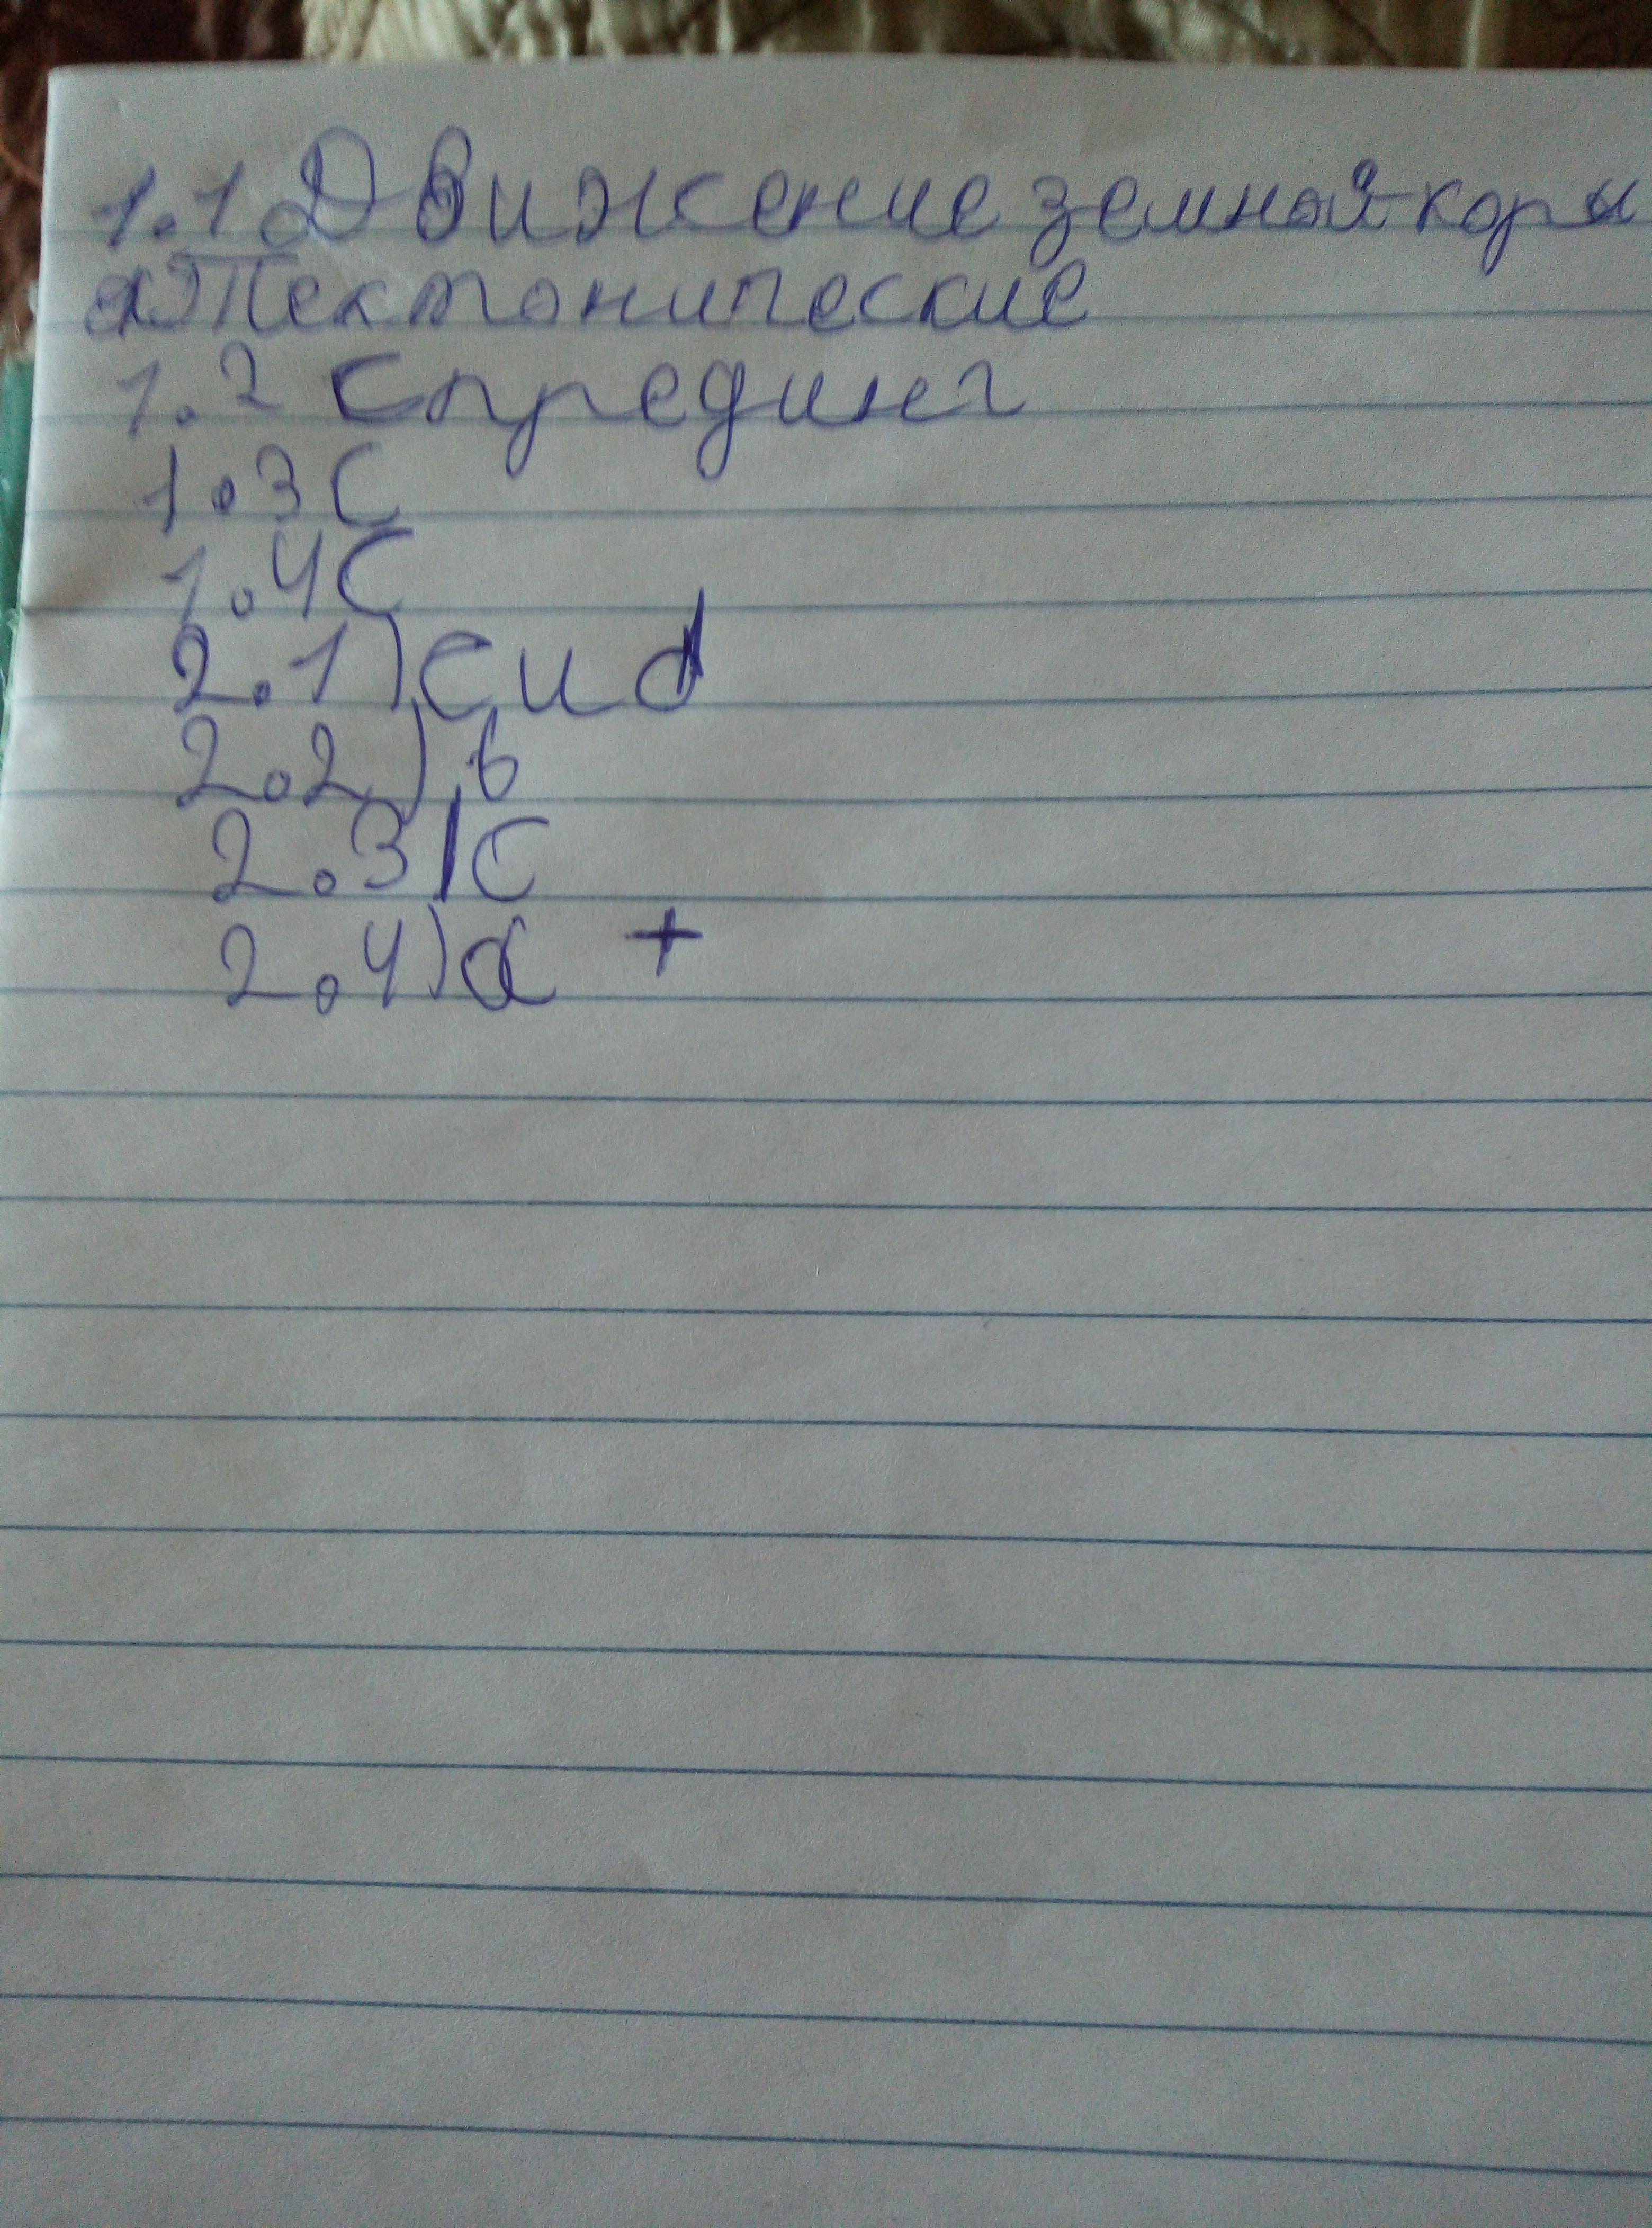 1.1 Движение земной коры
а) Тектонические
1.2 Спрединг
1.3 С
1.4 С
2.1) с и d
2.2) b
2.3) С
2.4) а +